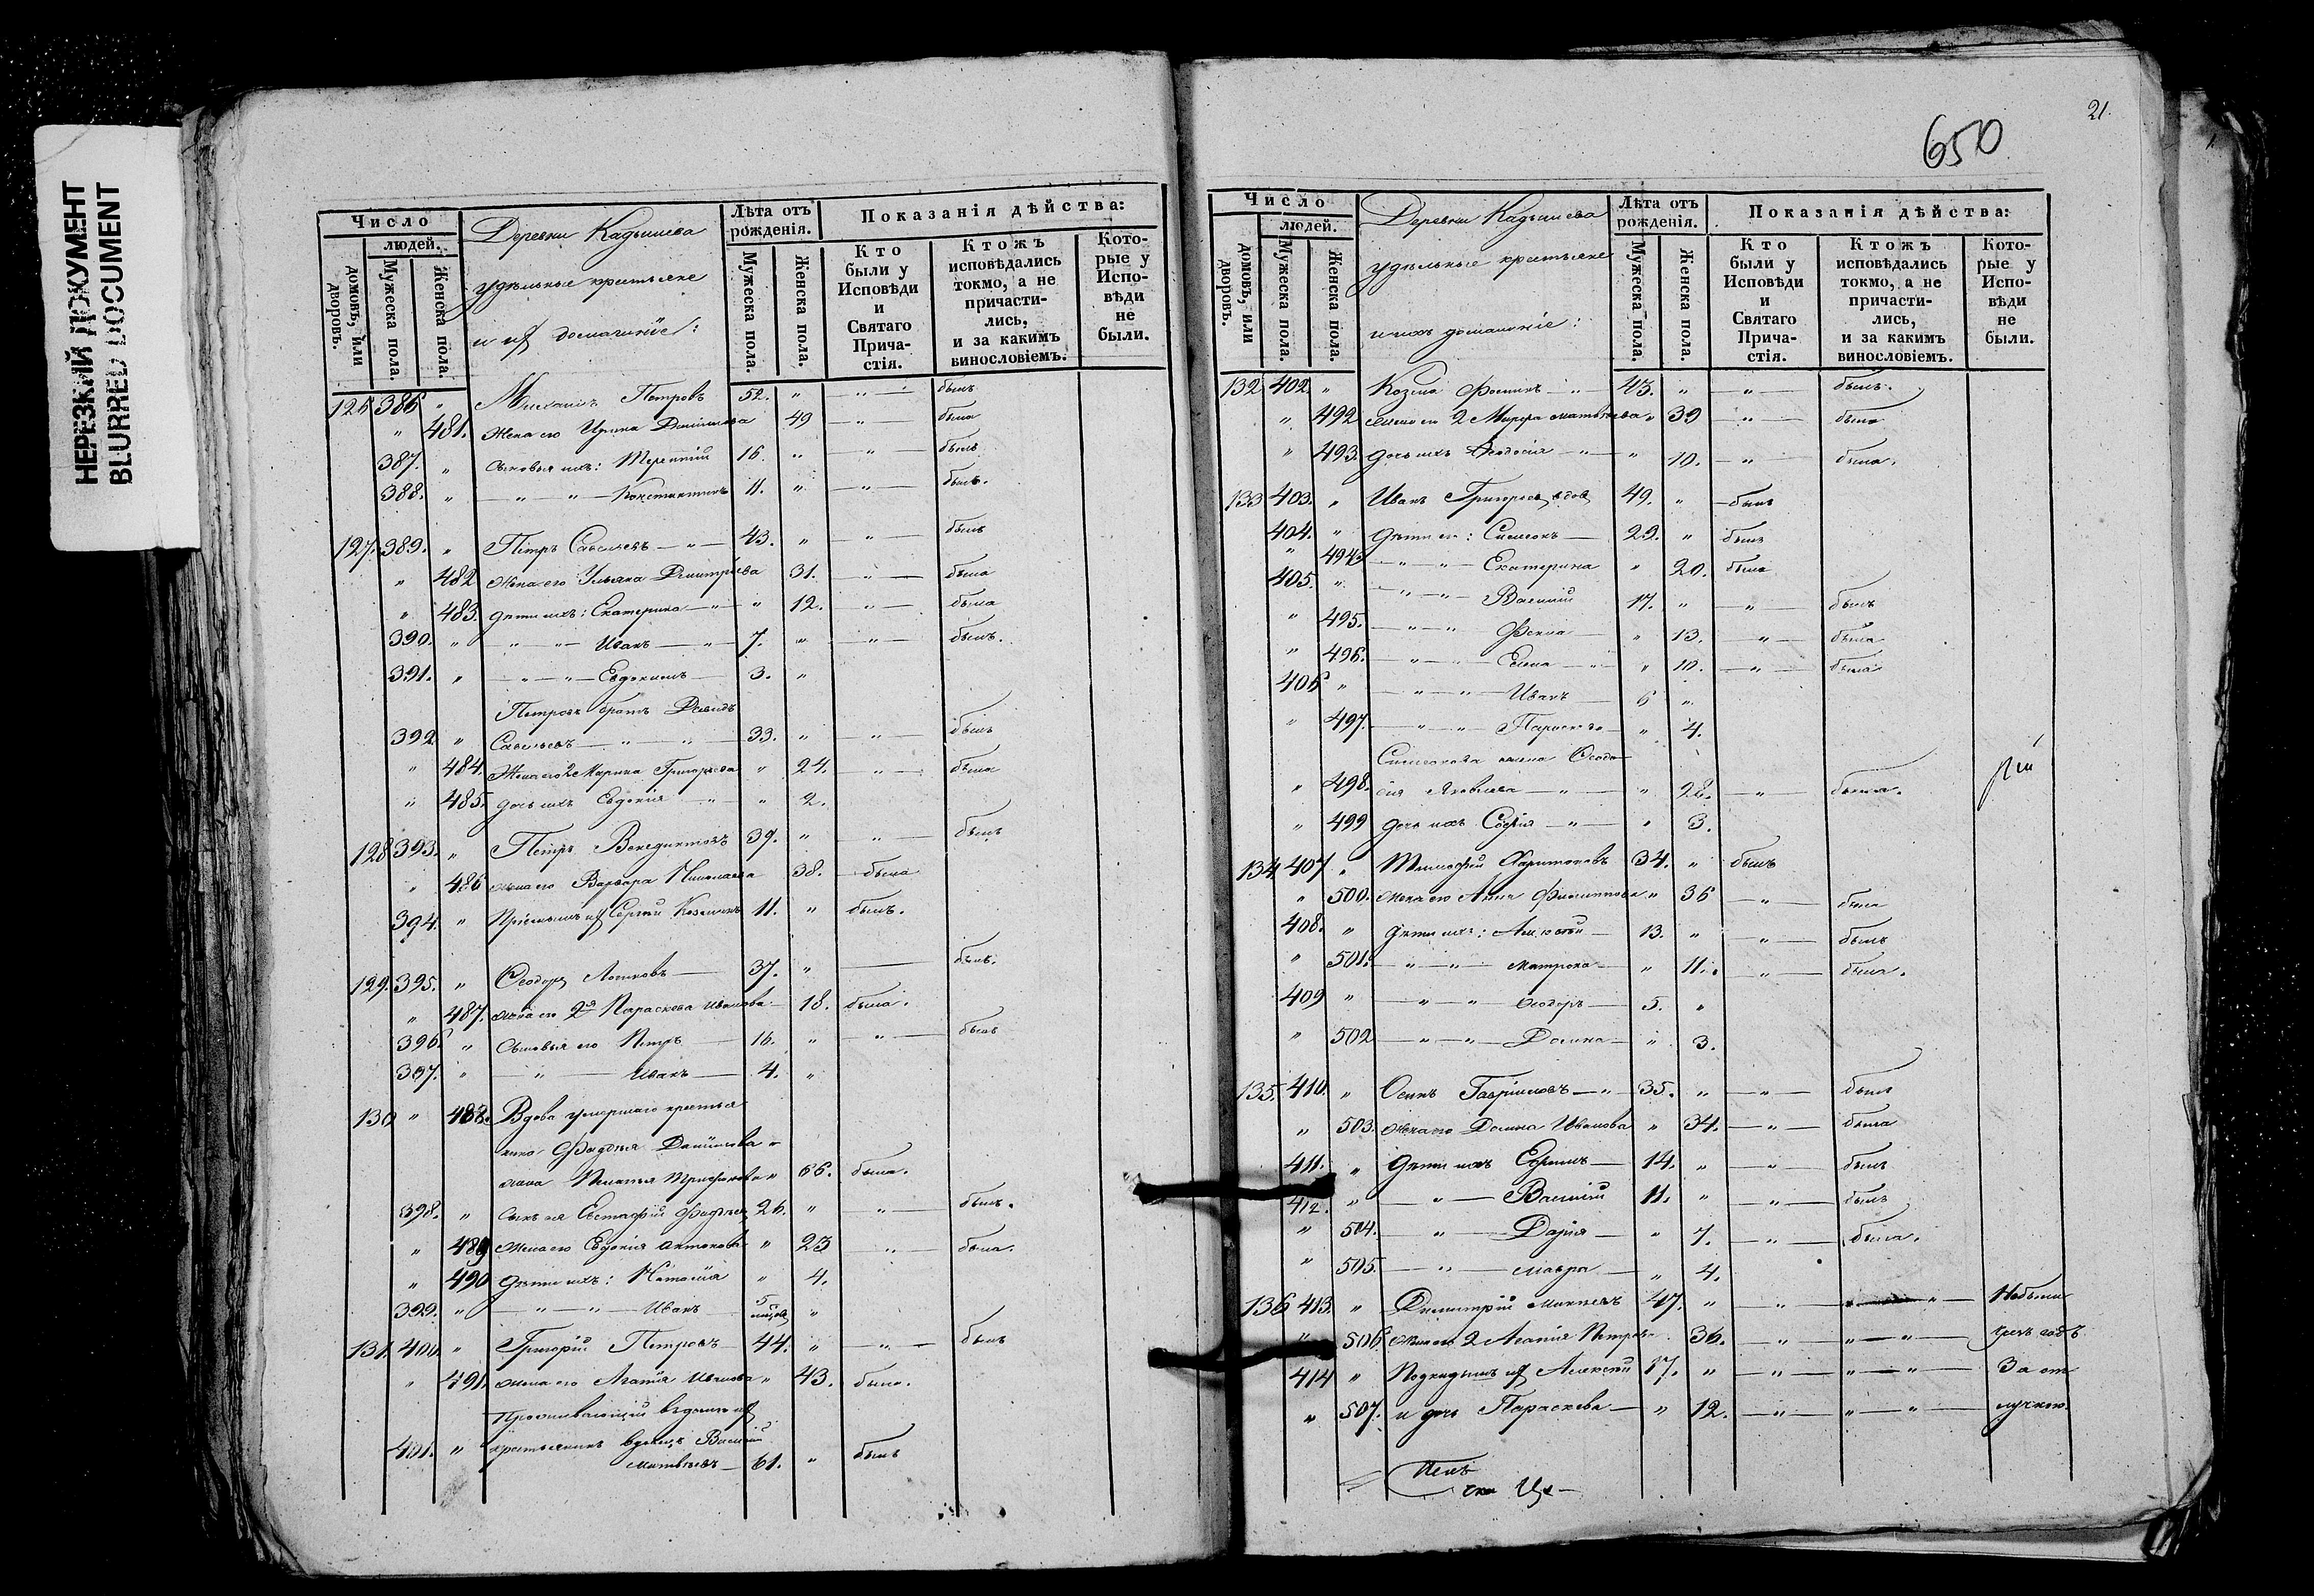 НЕРЕЗКИЙ ДОКУМЕНТ
BLURRED DOCUMENT
Число
людей.
домовъ, или дворовъ.
Мужеска пола.
Женска пола.
Деревни Кадышева
удѣльные крестьяне
и их домашніе:
Лѣта отъ рожденія.
Мужеска пола.
Женска пола.
Показанія дѣйства:
Кто были у Исповѣди и Святаго Причастія.
Ктожъ исповѣдались токмо, а не причастились, и за какимъ винословіемъ.
Которые у Исповѣди не были.
126 386 " Михаилъ Петровъ 52. " " былъ
" 481. Жена его Ирина Даниілова 49 " была
387. " Сыновья ихъ: Терентій 16. " " былъ
388. " " " Константинъ 11. " " былъ.
127. 389. " Петръ Савельевъ " 43. " " былъ
" 482 Жена его Ульяна Димитріева 31. " была
" 483. Дѣти ихъ: Екатерина " " 12. " была
390. " " " Иванъ " 7. " " былъ.
391. " " " Евдокимъ 3. "
Петровъ братъ Давидъ
392 " Савельевъ " " 33. " " былъ
" 484. Жена его 2 Марина Григорьева " 24. " была
" 485. дочь ихъ Евдокія " " 2.
128 393. " Петръ Венедиктовъ 39. " " былъ
" 486 жена его Варвара Николаева 38. была
394. " Пріемышъ их Сергій Козминъ 11. " былъ.
129. 395. " Ѳеодоръ Логиновъ 37. " былъ.
" 487. жена его 2я Параскева Иванова 18. была.
396. " Сыновья его Петръ 16. " " былъ
397. " " Иванъ 4. "
130 " 488. Вдова умершаго крестья
нина Фадѣя Даниілова
жена Меланья Трифонова " 66. была.
398. " Сынъ ея Евстафій Фадѣевъ 26. " " былъ.
" 489 Жена его Евдокія Антонова " 23 " была.
" 490 Дѣти ихъ: Наталія " 4.
399. " " " Иванъ 5 мѣсяц "
131. 400. " Григорій Петровъ 44. " " былъ
" 491. жена его Агафія Иванова " 43. была.
Проживающій въ домѣ их
401. " крестьянинъ вдовецъ Василій
Матвѣевъ 61. " былъ
21.
650
Число
людей.
домовъ, или дворовъ.
Мужеска пола.
Женска пола.
Деревни Кадышева
удѣльные крестьяне
и ихъ домашніе:
Лѣта отъ рожденія.
Мужеска пола.
Женска пола.
Показанія дѣйства:
Кто были у Исповѣди и Святаго Причастія.
Ктожъ исповѣдались токмо, а не причастились, и за какимъ винословіемъ.
Которые у Исповѣди не были.
132 402. " Козма Фоминъ " 43. " " былъ.
" 492 жена его 2 Марфа Матвѣева " 39 " была
" 493. дочь ихъ Ѳеодосія " " 10. " была.
133 403. " Иванъ Григорьев вдов 49. " былъ
404. " Дѣти его: Симеонъ 22. " былъ
" 494 " " Екатерина " 20. была
405. " " " Василій 17. " " былъ
" 495. " " Фекла " 13. " была
" 496. " " Елена " " 10. " была
406 " " " Иванъ 6 "
" 497. " " Параскева " 4.
Симеонова жена Ѳеодо
" 498. сія Яковлева " " 22. " была.
" 499 дочь ихъ Софія " " 3.
134 407 " Тимофей Харитоновъ 34. " былъ
" 500. Жена его Анна Филиппова " 36 " была
408. " Дѣти ихъ: Алексѣй 13. " " былъ
" 501. " " Матрона " 11. " была.
409 " " " Ѳеодоръ 5. "
" 502 " " Домна " 3.
135. 410. " Осипъ Гавриловъ " 35. " " былъ
" 503. Жена его Домна Иванова " 34. " была
411. " Дѣти ихъ Ефимъ 14. " " былъ
412. " " Василій 11. " " былъ
" 504. " Дарія " 7. " была.
" 505. " Мавра " 4.
136 413. " Димитрій Михѣевъ 47. " " " Небыли
" 506. Жена его 2 Агафія Петрова 36. " " "
414 " Подкидышъ их Алексѣй 17. " " " " За от
" 507. и дочь Параскева " 12. " " " лучкою.